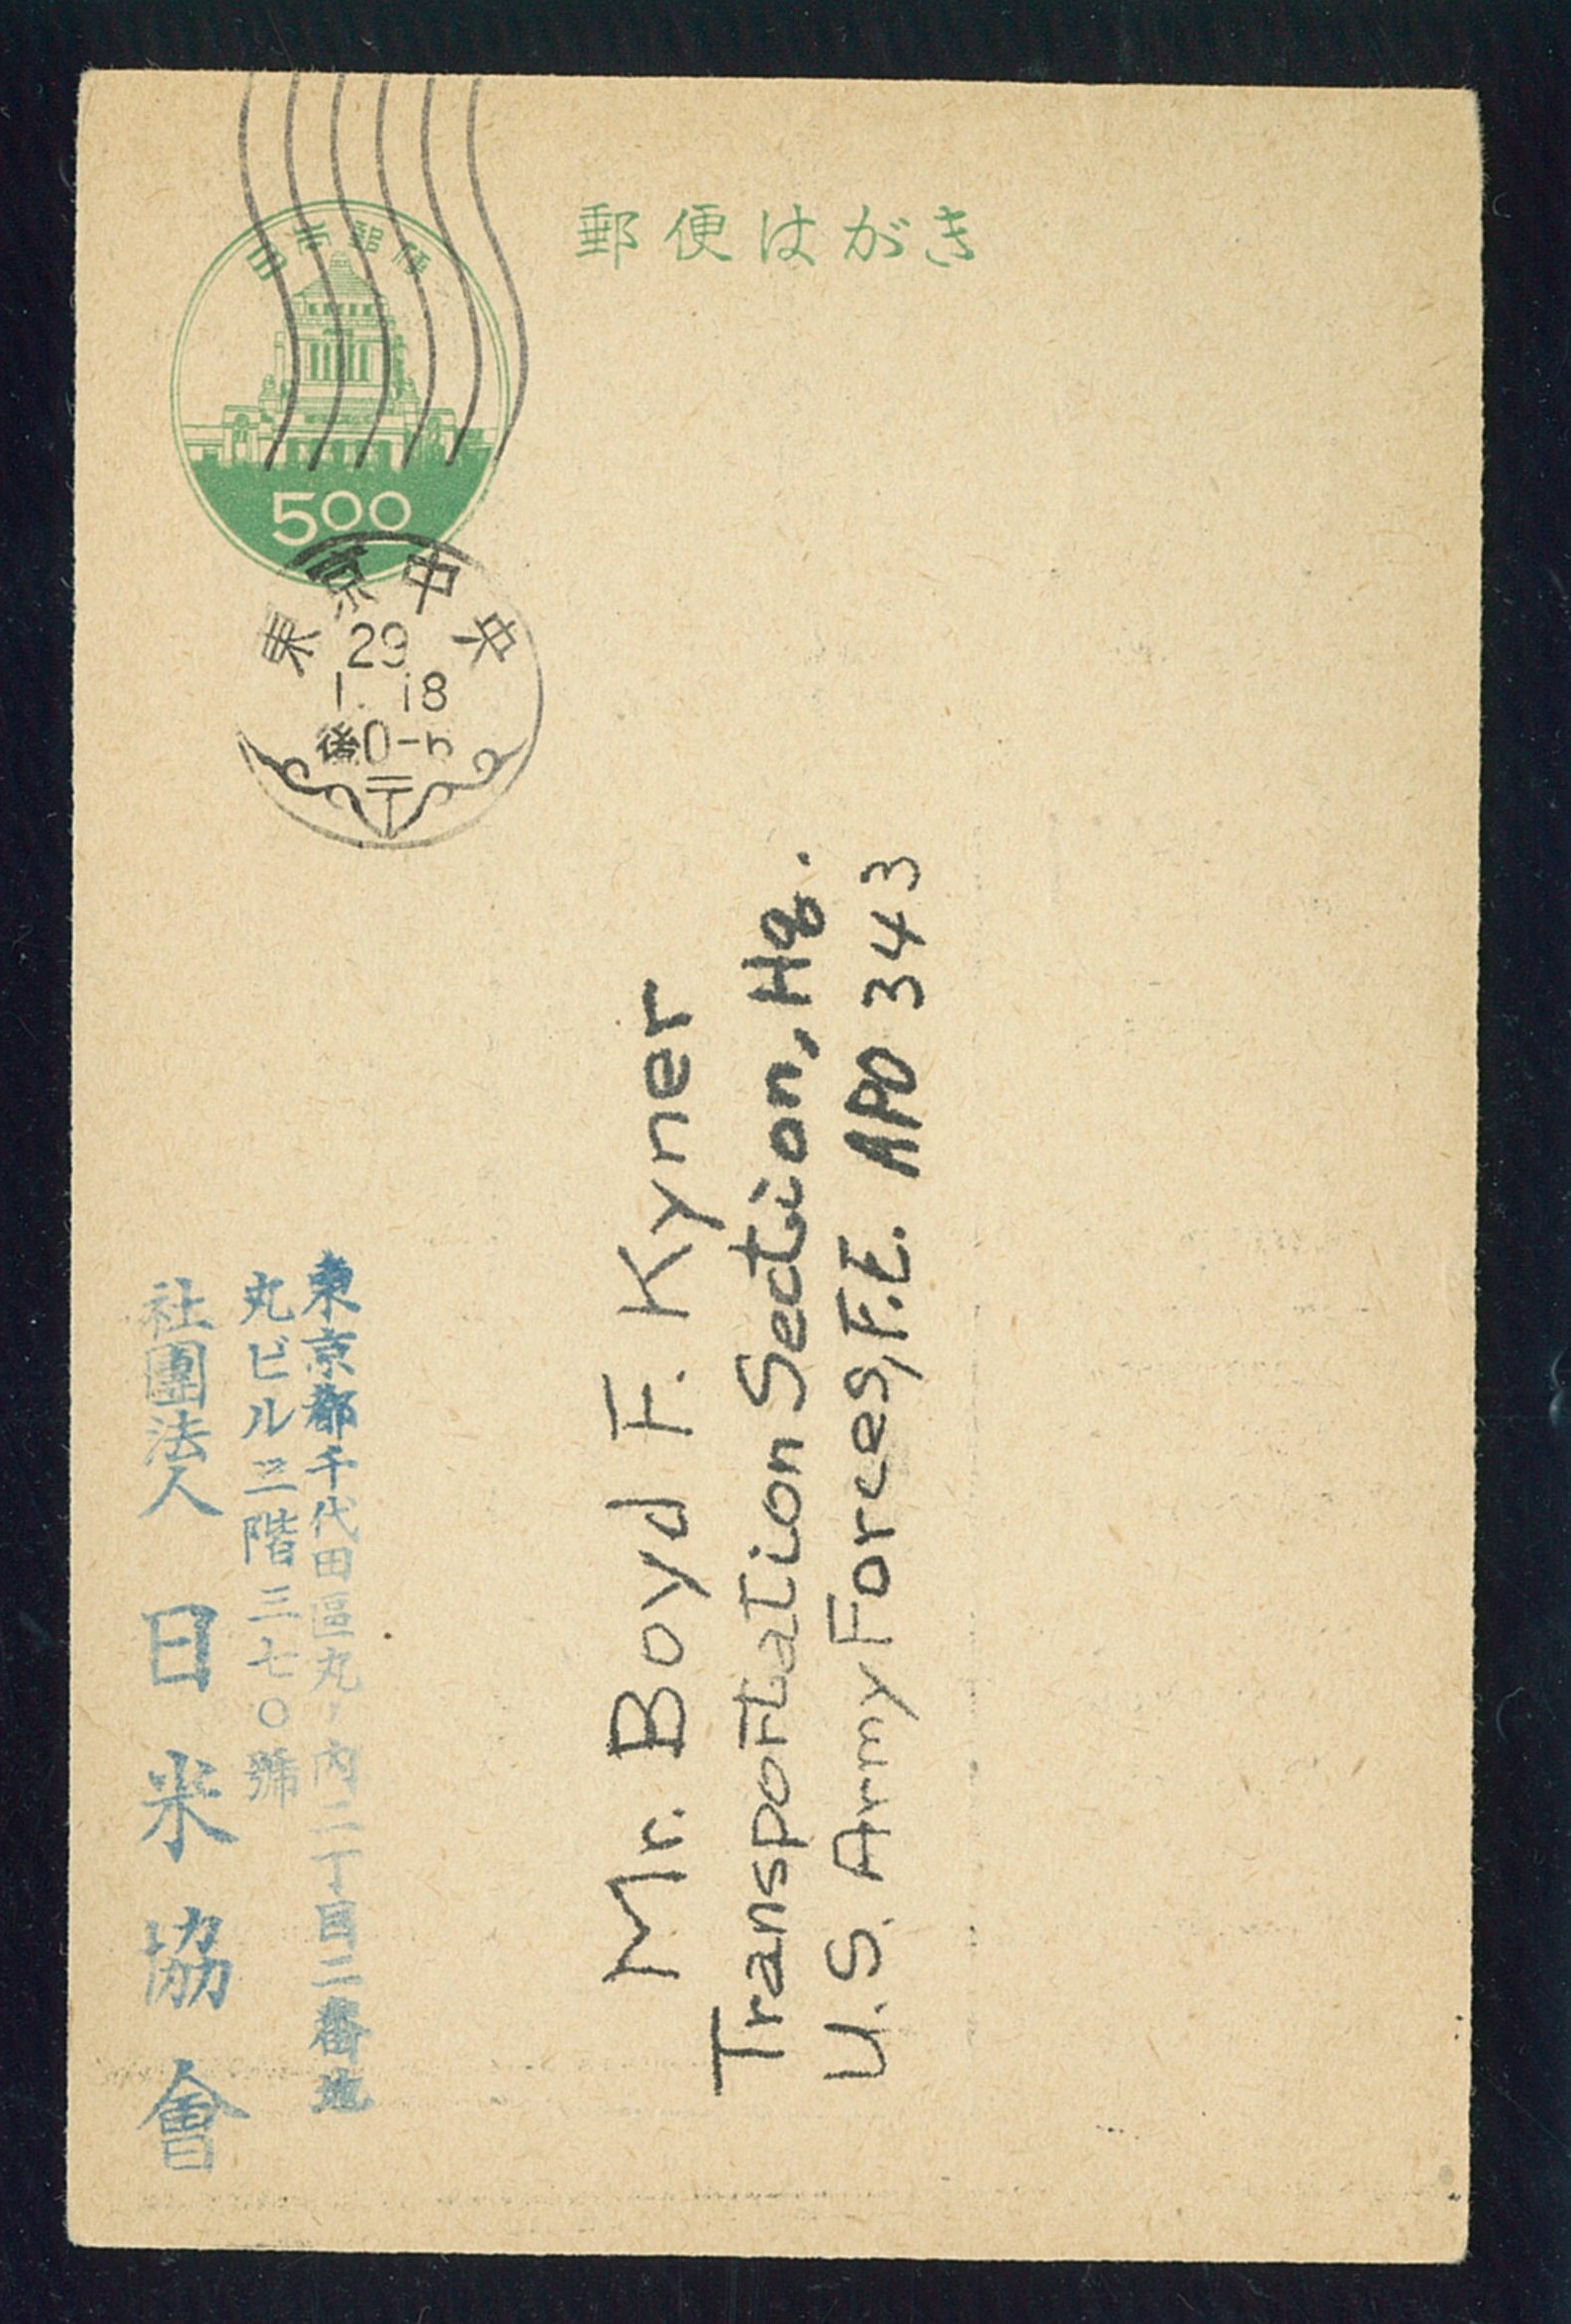 郵便はがき
日本郵便
500
東京中央
29
1. 18
後0-
〒
Mr. Boyd F. Kyner
Transportation Section, Hq.
U.S. Army Forces, F.E. APO 343
東京都千代田區丸ノ内二丁目二番地
丸ビル三階三七〇號
社團法人 日米協會